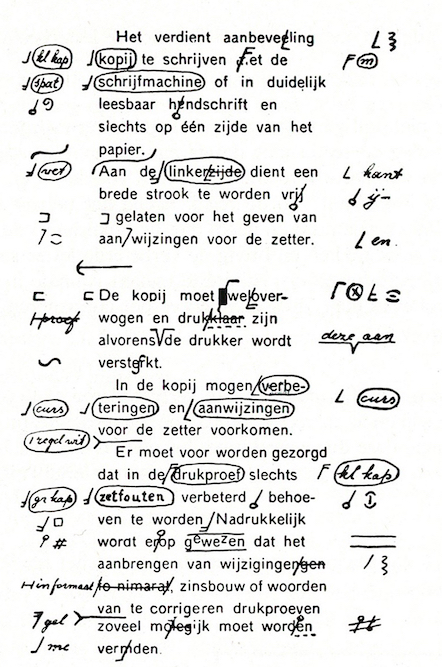 Het verdient aanbeveling
kl kap kopij te schrijven et de F m
spat schrijfmachine of in duidelijk
leesbaar handschrift en
slechts op één zijde van het
papier.
vet Aan de linkerzijde dient een kant
brede strook te worden vrij ij
gelaten voor het geven van
aan wijzingen voor de zetter. en.
De kopij moet wel over-
proef wogen en drukklaar zijn
alvorens de drukker wordt deze aan
versterkt.
In de kopij mogen verbe-
curs teringen en aanwijzingen curs
voor de zetter voorkomen.
1 regel wit
Er moet voor worden gezorgd
dat in de drukproef slechts F kl kap
gr kap zetfouten verbeterd behoe-
ven te worden Nadrukkelijk
# wordt erop gewezen dat het
aanbrengen van wijzigingengen
informaat to nimarat, zinsbouw of woorden
van te corrigeren drukproeven
gel zoveel molegijk moet worden
me vermiden.